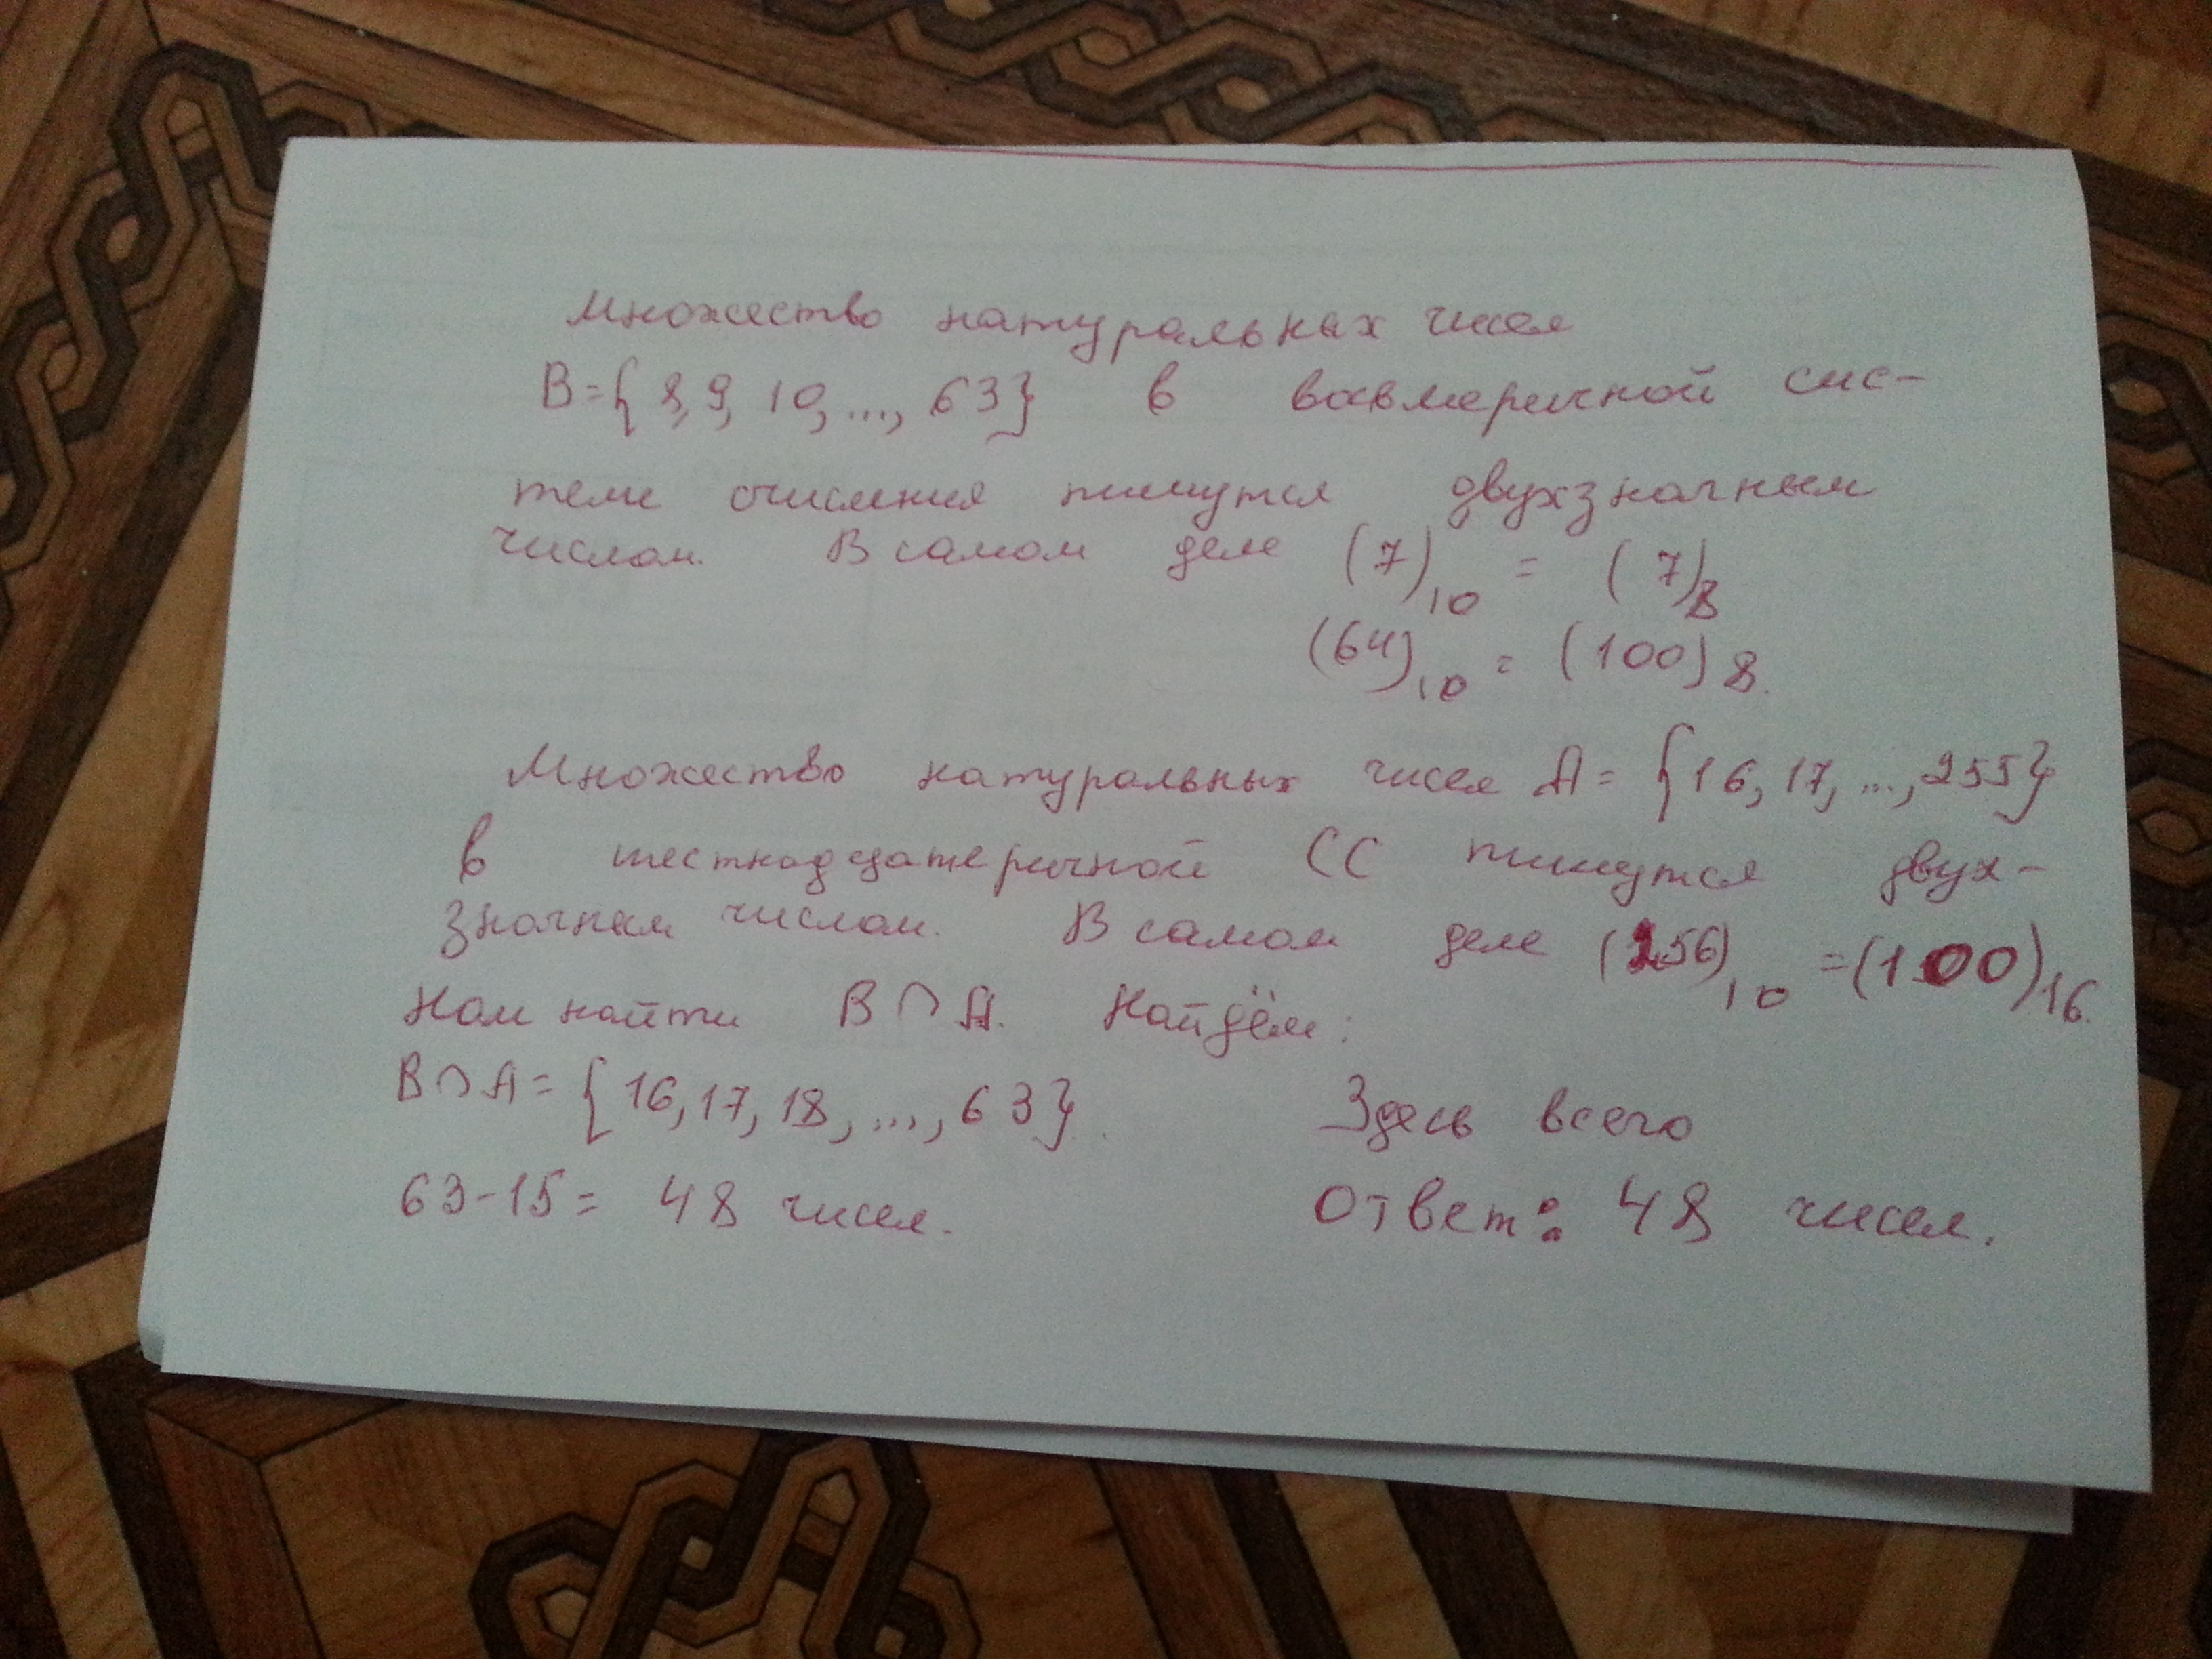 Множество натуральных чисел
B={8,9,10,...,63} в восьмеричной сис-
теме счисления пишутся двухзначным
числом. В самом деле (7)₁₀ = (7)₈
(64)₁₀ = (100)₈.
Множество натуральных чисел A={16,17,...,255}
в шестнадцатеричной СС пишутся двух-
значным числом. В самом деле (256)₁₀ =(100)₁₆.
Нам найти B∩A. Найдём:
B∩A={16,17,18,...,63}. Здесь всего
63-15= 48 чисел. Ответ: 48 чисел.